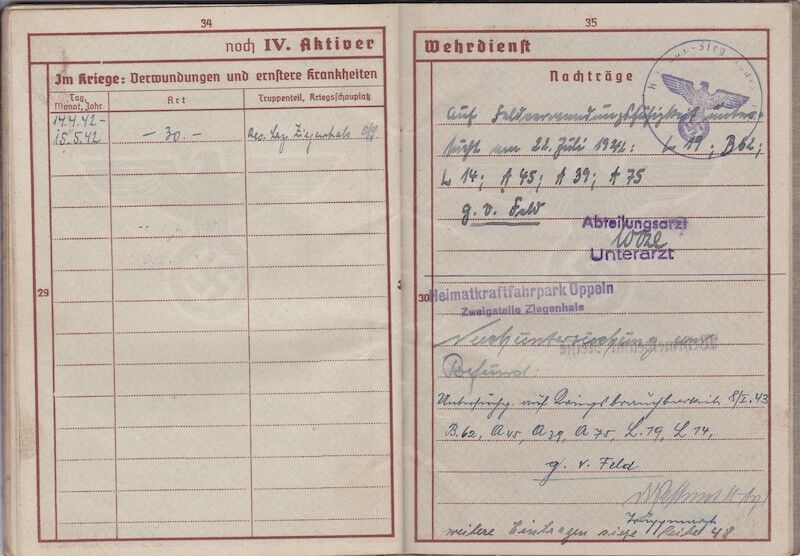 34
noch IV. Aktiver
Im Kriege: Verwundungen und ernstere Krankheiten
Tag, Monat, Jahr
Art
Truppenteil, Kriegsschauplatz
14.4.42-
15.5.42
- 30. -
Res. Laz. Ziegenhals O/S
29
35
Wehrdienst
Nachträge
Auf Feldverwendungsfähigkeit unter-
sucht am 22. Juli 1942: L 19; B 62;
L 14; A 45; A 39; A 75
g. v. Feld
Abteilungsarzt
Unterarzt
30
Heimatkraftfahrpark Oppeln
Zweigstelle Ziegenhals
Nachuntersuchung
Befund:
Untersuchg. auf Kriegsbrauchbarkeit 8/I. 43
B. 62, A 45, A 39, A 75, L. 19, L 14,
g. v. Feld
Truppenarzt
weitere Eintragen siehe Seite 48